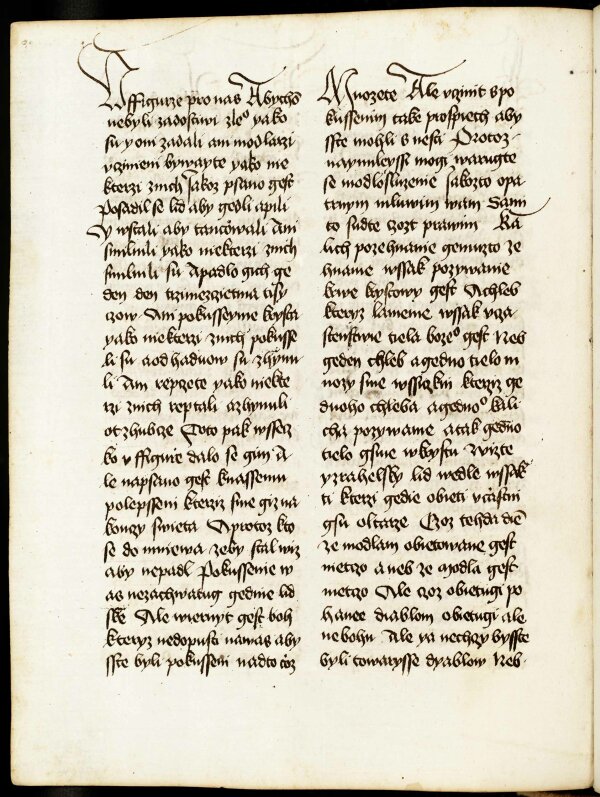 V ffigurze pro nas Abychō
nebyli zadostiwi zleº yako
su y oni zadali ani modlarzi
vczineni bywayte yako nie
kterzi znich Jakoz psano gest
Posadil se lid aby gedli a pili
y wstali aby tanczowali Ani
smilnili yako niekterzi znich
smilnili su A padlo gich ge
den den trzimezcietma tisy
czow Ani pokusseyme krysta
yako niekterzi znich pokusse
li su a od haduow su zhynu
li Ani repczete yako niekte
rzi znich reptali a zhynuli
ot zhubcze Toto pak wssecz
ko v ffigurze dalo se gim A
le napsano gest knassemu
polepsseni kterziz sme giz na
konczy swieta A protoz kto
se do mniewa zeby stal wiz
aby nepadl Pokussenie w
as nezachwatug gedine lid
ske Ale wiernyt gest boh
kteryz nedopusti na was aby
sste byli pokusseni nad to cōz
Muozete Ale vczinit s po
kussenim take prospiech aby
sste mohli snesti Protoz
naymileyssi mogi warugte
se modlosluzenie Jakozto opa
trnym mluwim wam Sami
to sudte czoz prawim Ka
lich pozehnanie gemuzto ze
hname wssak pozywanie
krwe krystowy gest A chleb
kteryz lameme wssak vcza
stenstwie tiela bozeº gest Neb
geden chleb a gedno tielo m
nozy sme wssiczkni kterziz ge
dnoho chleba a gednoº kali
cha pozywame a tak gedno
tielo gsme w krystu Wizte
yzrahelsky lid wedle wssak
ti kterzi gedie obieti vczastni
gsu oltarze Czoz tehda diē
ze modlam obietowane gest
nieczo aneb ze modla gest
nieczo Ale czoz obietugi po
hanee diablom obietugi a le
ne bohu Ale ya nechczy bysste
byli towarzysse dyablow Neb